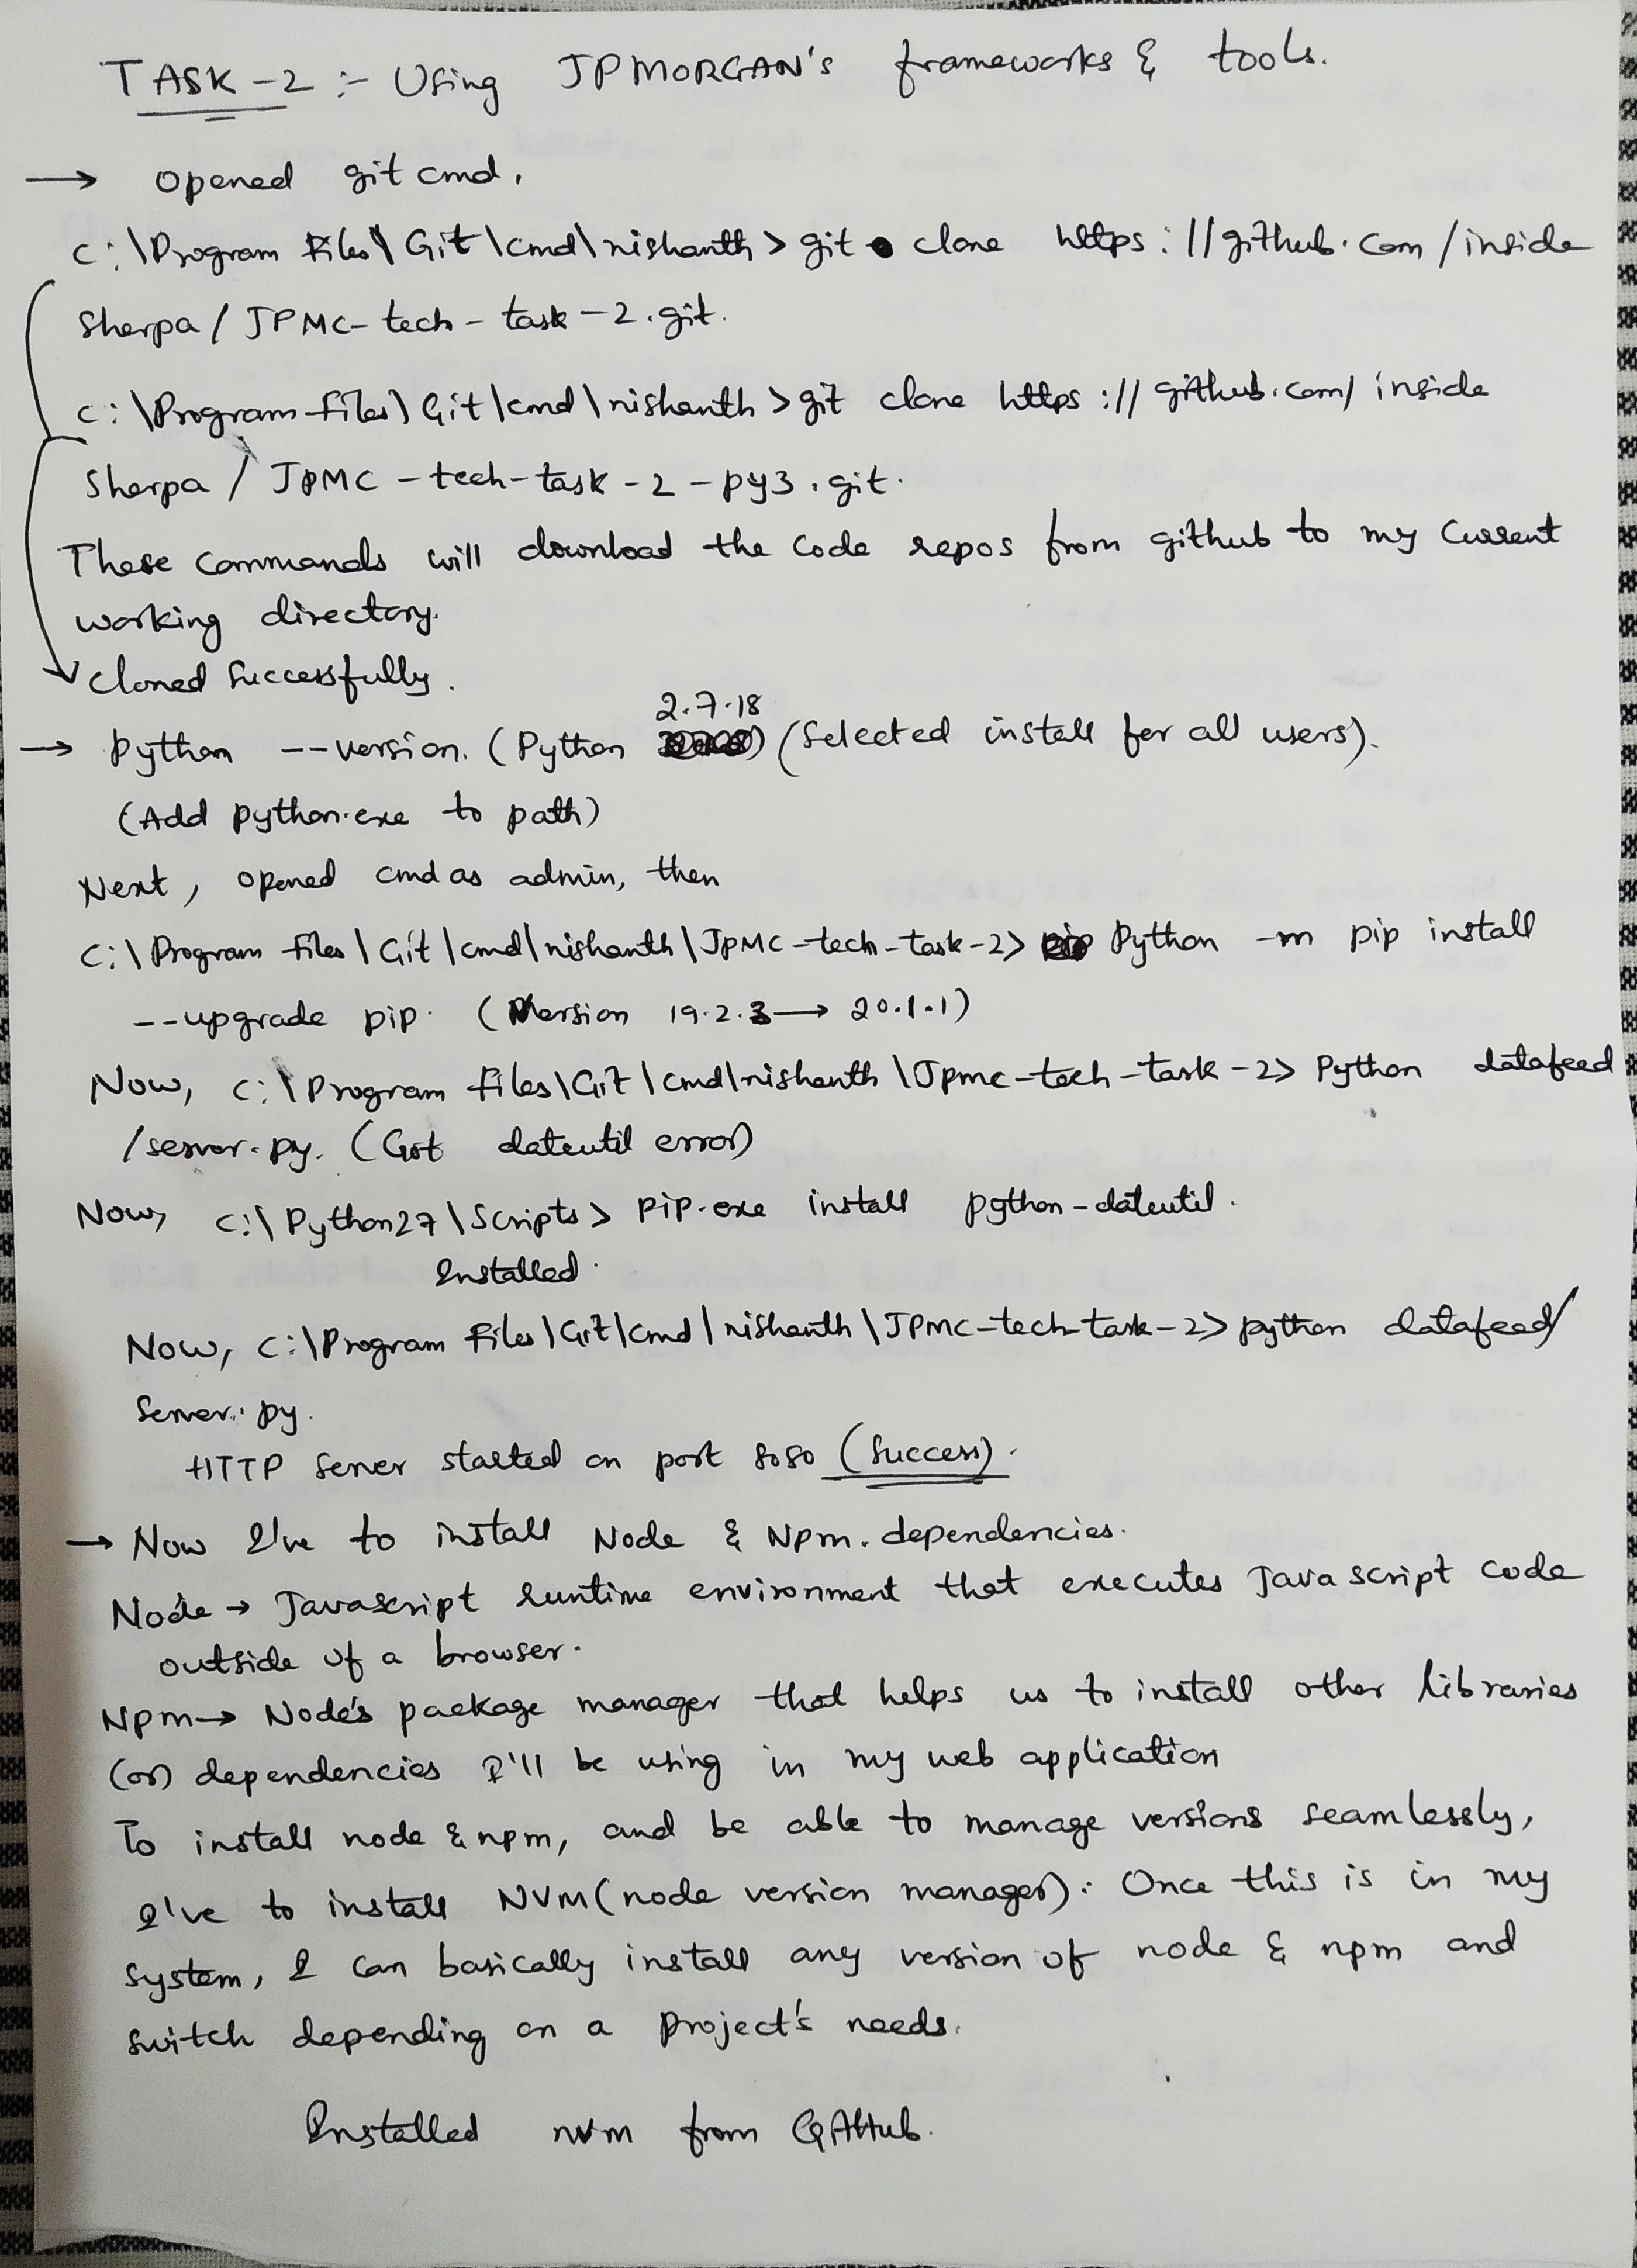 TASK-2 :- Using JPMORGAN's frameworks & tools.
→ opened git cmd.
C:\Program Files\Git\cmd\nishanth>git clone https://github.com/inside
Sherpa/JPMC-tech-task-2.git.
C:\Program files\Git\cmd\nishanth>git clone https://github.com/inside
Sherpa/JPMC-tech-task-2-py3.git.
These commands will download the code repos from github to my current
working directory.
Cloned Successfully.
2.7.18
→ python --version. (Python ) (Selected install for all users).
(Add python.exe to path)
Next, opened cmd as admin, then
C:\Program files\Git\cmd\nishanth\JPMC-tech-task-2> Python -m pip install
--upgrade pip. (Version 19.2.3 → 20.1.1)
Now, C:\Program files\Git\cmd\nishanth\Jpmc-tech-task-2> Python datafeed
/server.py. (Got dateutil error)
Now, C:\Python27\Scripts> pip.exe install python-dateutil.
Installed.
Now, C:\Program Files\Git\cmd\nishanth\JPMC-tech-task-2> python datafeed/
Server.py.
HTTP Server started on port 8080 (Success).
→ Now I've to install Node & Npm. dependencies.
Node → Javascript runtime environment that executes Javascript code
outside of a browser.
Npm → Node's package manager that helps us to install other libraries
(or) dependencies I'll be using in my web application
To install node & npm, and be able to manage versions seamlessly,
I've to install NVM (node version manager). Once this is in my
system, I can basically install any version of node & npm and
switch depending on a project's needs.
Installed nvm from GitHub.